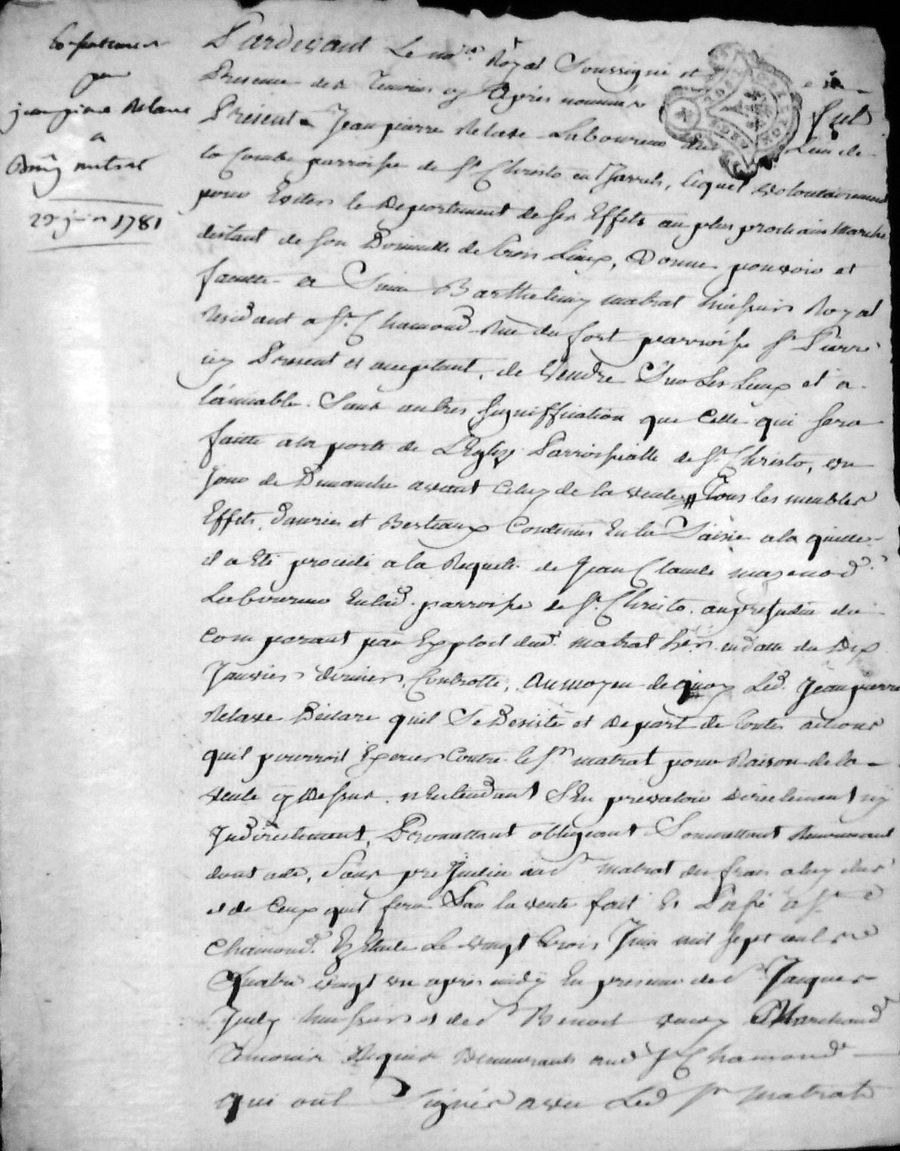 Comparant
par
jean pierre Relave
a
Bmy matrat
23 juin 1781
Pardevant Le no.re Royal Soussigné et en
Presence des Temoins cy Apres nommés fut
Présent Jean pierre Relave Laboureur du Lieu de
la Combe parroisse de St Christo en Jarrets, lequel volontairement
pour Eviter le Departement de ses Effets au plus prochain marché
distant de son Domicille de trois Lieux, Donne pouvoir et
faculté a Sieur Barthelemy matrat huissier Royal
Residant a St Chamond Rue du fort parroisse St Pierre
icy Present et acceptant, de vendre Sur Les Lieux et a
l'amiable. Sans autres signiffication que Celle qui sera
faitte a la porte de L'Eglize Parroissialle de St Christo, un
jour de Dimanche avant Celuy de la vente, Tous les meubles
Effets, danrées et Bestiaux Contenus En la Saisie a la quelle
il a Eté procedé a la Requette de Jean Claude mazenod
Laboureur Enlad. parroisse de St Christo. au prejudice du
comparant par Exploit dud. matrat her. en datte du Dix
Janvier dernier, Controllé, Aumoyen de quoy Led. Jean pierre
Relave Déclare quil Se Desiste et depart de toutes actions
quil pourroit Exercer Contre le Sr matrat pour Raison de la
vente cy Dessus. n'Entendant S'En prevaloir Directement ny
Indirectement, Promettant obligeant Soumettant Renoncant
dont acte, Sans prejudice aud. Sr matrat des frais a luy dus
et de Ceux quil fera Pour la vente fait Et Passé a St
Chamond. Estude Le vingt trois Juin mil sept cent
Quatre vingt un apres midy En presence de Sr Jacques
Judy huissier et de Sr Benoit Marchand
Temoins Requis Demeurants aud. St Chamond
qui ont Signés avec Led Sr matrat